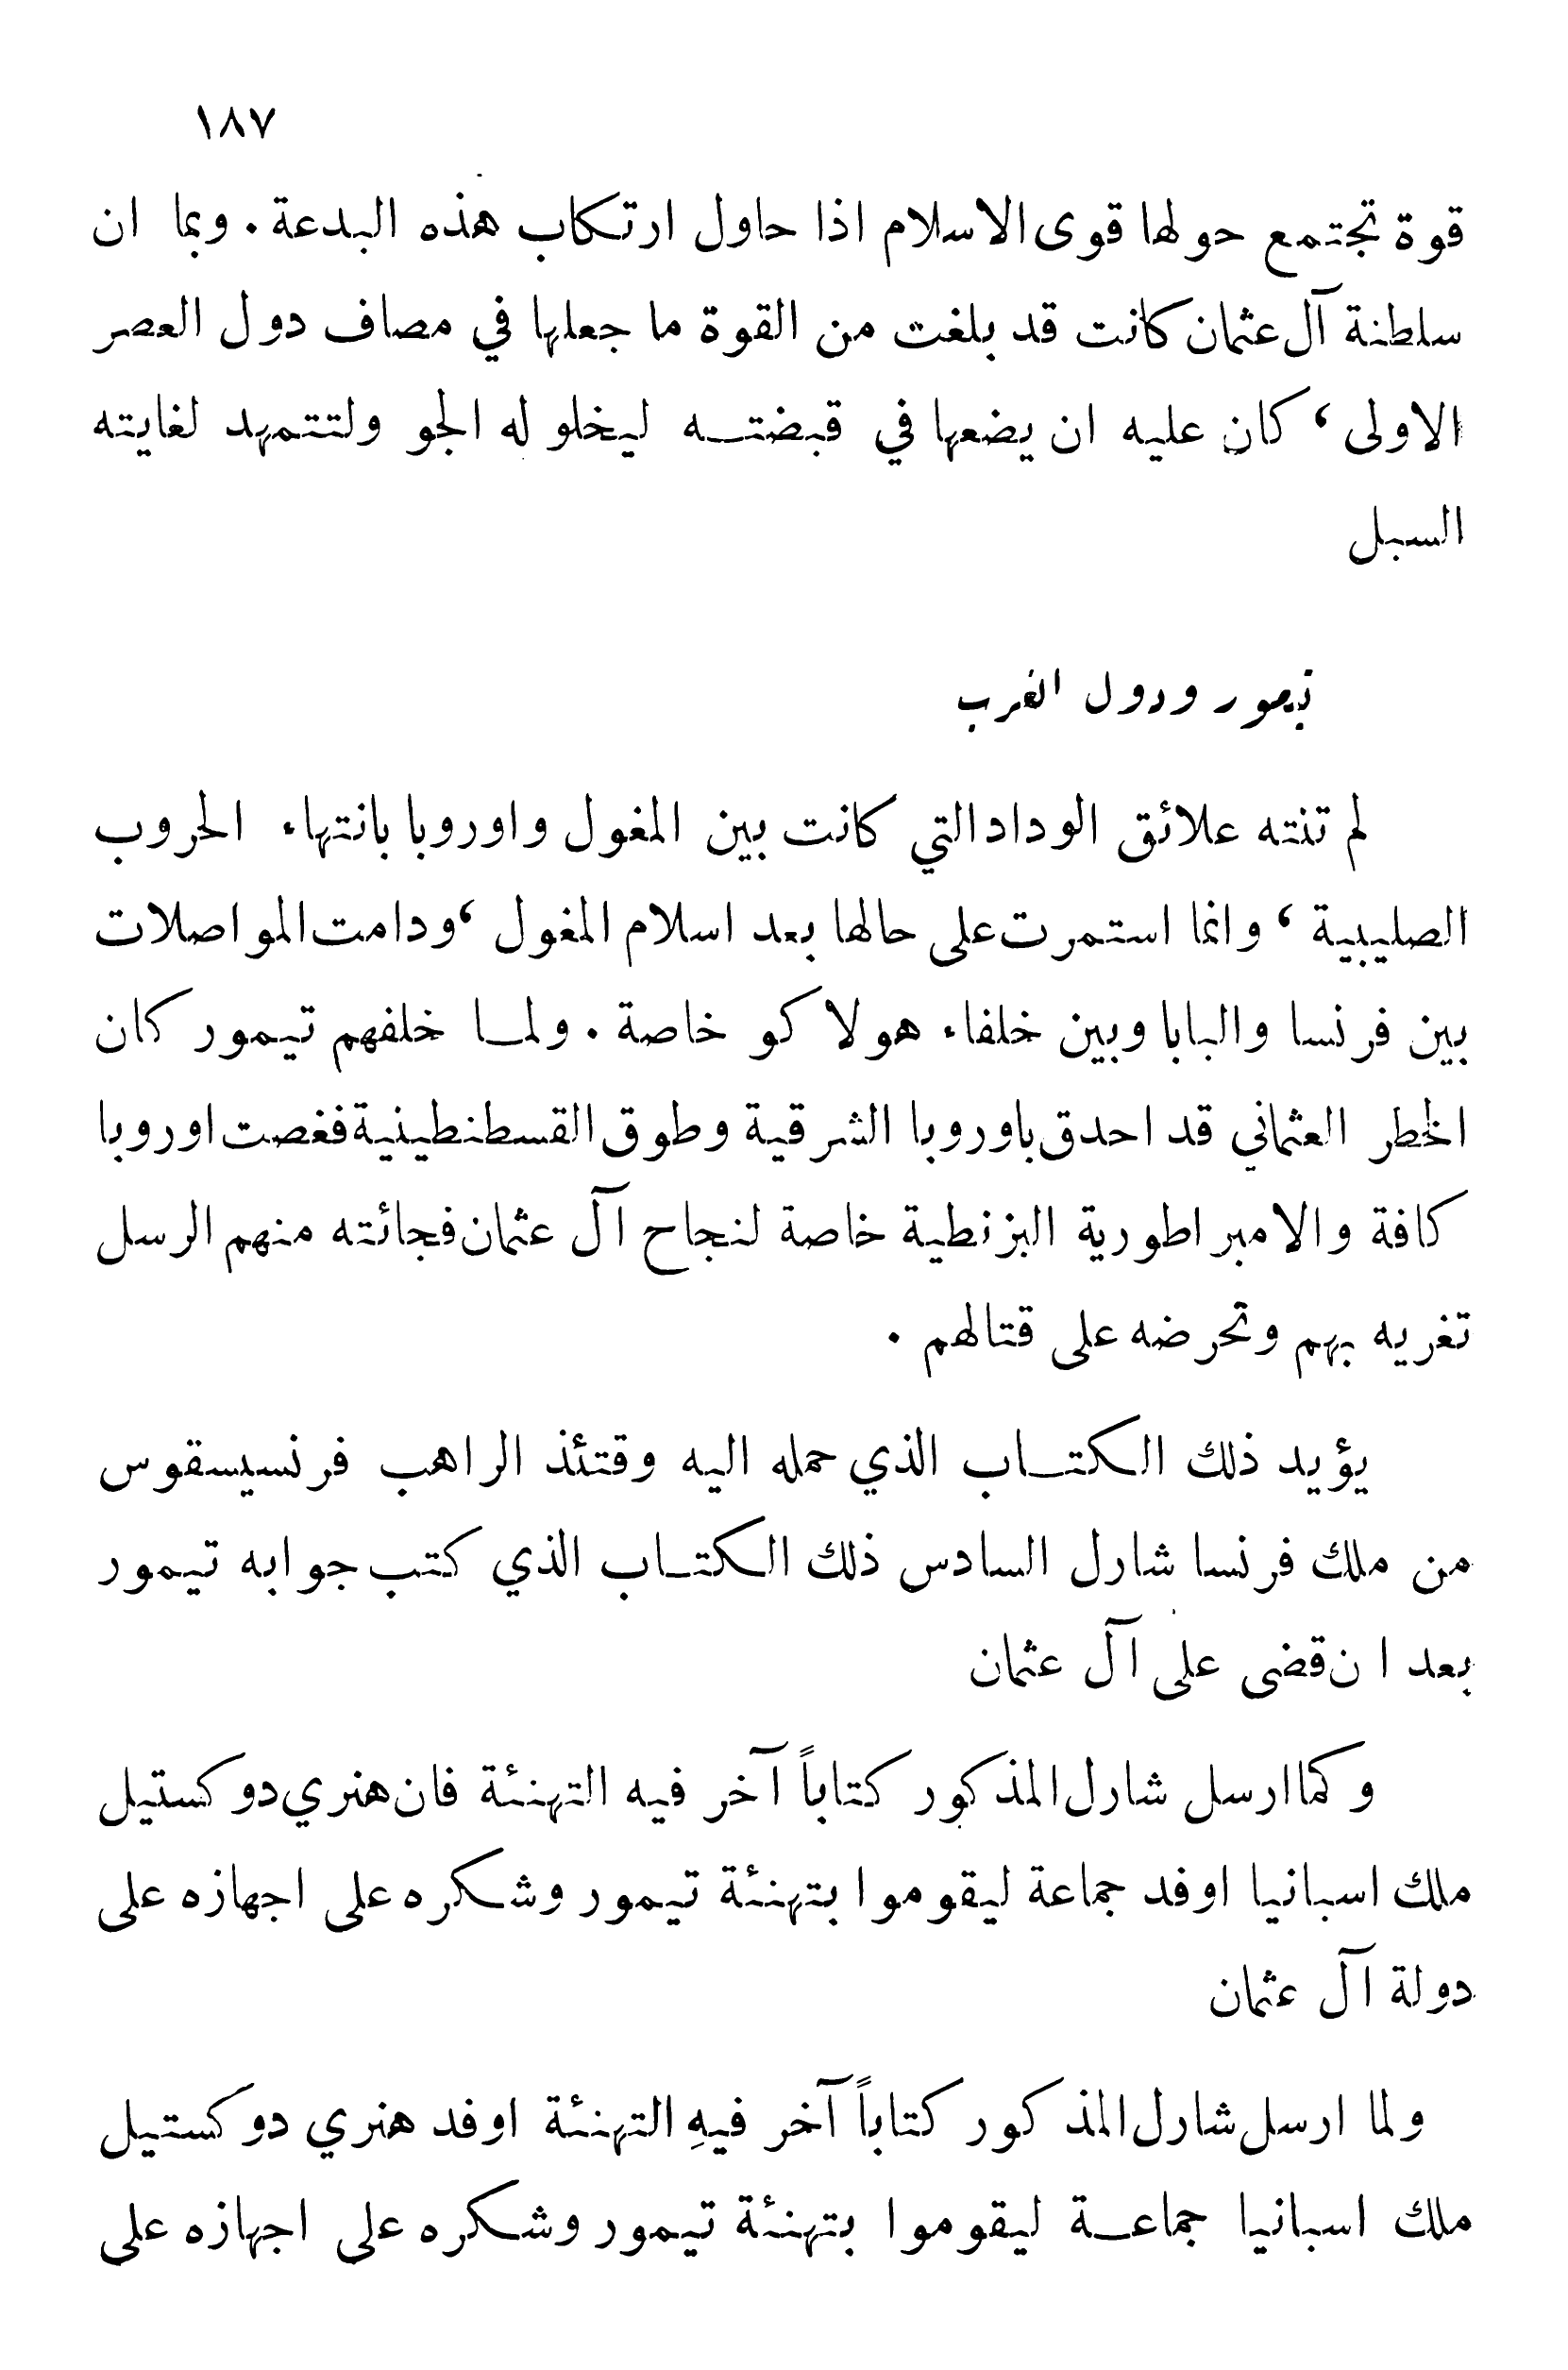 ١٨٧
قوة تجتمع حولها قوى الاسلام اذا حاول ارتكاب هذه البدعة . وبما ان
سلطنة آل عثمان كانت قد بلغت من القوة ما جعلها في مصاف دول العصر
الاولى ، كان عليه ان يضعها في قبضتـه ليخلو له الجو ولتتمهد لغايته
السبل
تيمور ودول الغرب
لم تنته علائق الوداد التي كانت بين المغول واوروبا بانتهاء الحروب
الصليبية ، وانما استمرت على حالها بعد اسلام المغول ، ودامت المواصلات
بين فرنسا والبابا وبين خلفاء هولاكو خاصة . ولمـا خلفهم تيمور كان
الخطر العثماني قد احدق باوروبا الشرقية وطوق القسطنطينية فغصت اوروبا
كافة والامبراطورية البزنطية خاصة لنجاح آل عثمان فجائته منهم الرسل
تغريه بهم وتحرضه على قتالهم .
يؤيد ذلك الكتـاب الذي حمله اليه وقتئذ الراهب فرنسيسقوس
من ملك فرنسا شارل السادس ذلك الكتـاب الذي كتب جوابه تيمور
بعد ان قضى على آل عثمان
وكما ارسل شارل المذكور كتاباً آخر فيه التهنئة فان هنري دو كستيل
ملك اسبانيا اوفد جماعة ليقوموا بتهنئة تيمور وشكره على اجهازه على
دولة آل عثمان
ولما ارسل شارل المذكور كتاباً آخر فيهِ التهنئة اوفد هنري دو كستيل
ملك اسبانيا جماعـة ليقوموا بتهنئة تيمور وشكره على اجهازه على